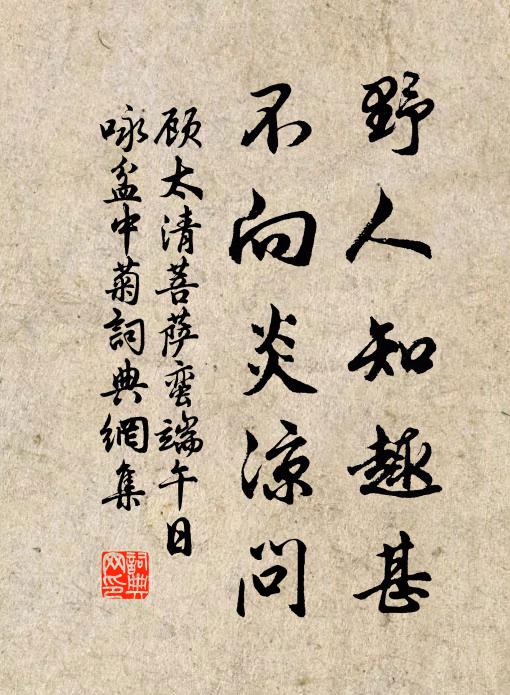 野人知趣甚
不向炎凉問
顾太清菩萨蛮端午日
咏盆中菊詞典網集
詞典网印